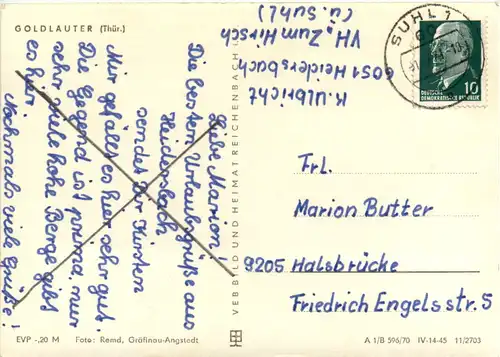 GOLDLAUTER (Thür.)
Liebe Marion!
Die besten Urlaubsgrüße aus
Heidersbach
sendet Dir Kirsten
Mir gefällt es hier sehr gut.
Die Gegend ist prima, nur
sehr viele hohe Berge gibt
es hier.
Nochmals viele Grüße!
K. Ulbricht
6051 Heidersbach
VH „Zum Hirsch
(ü. Suhl)
SUHL 1
DEUTSCHE
DEMOKRATISCHE REPUBLIK
10
Frl.
Marion Butter
9205 Halsbrücke
Friedrich Engelsstr. 5
VEB BILD UND HEIMAT REICHENBACH
EVP -,20 M Foto: Remd, Gräfinau-Angstedt
A 1/B 596/70 IV-14-45 11/2703